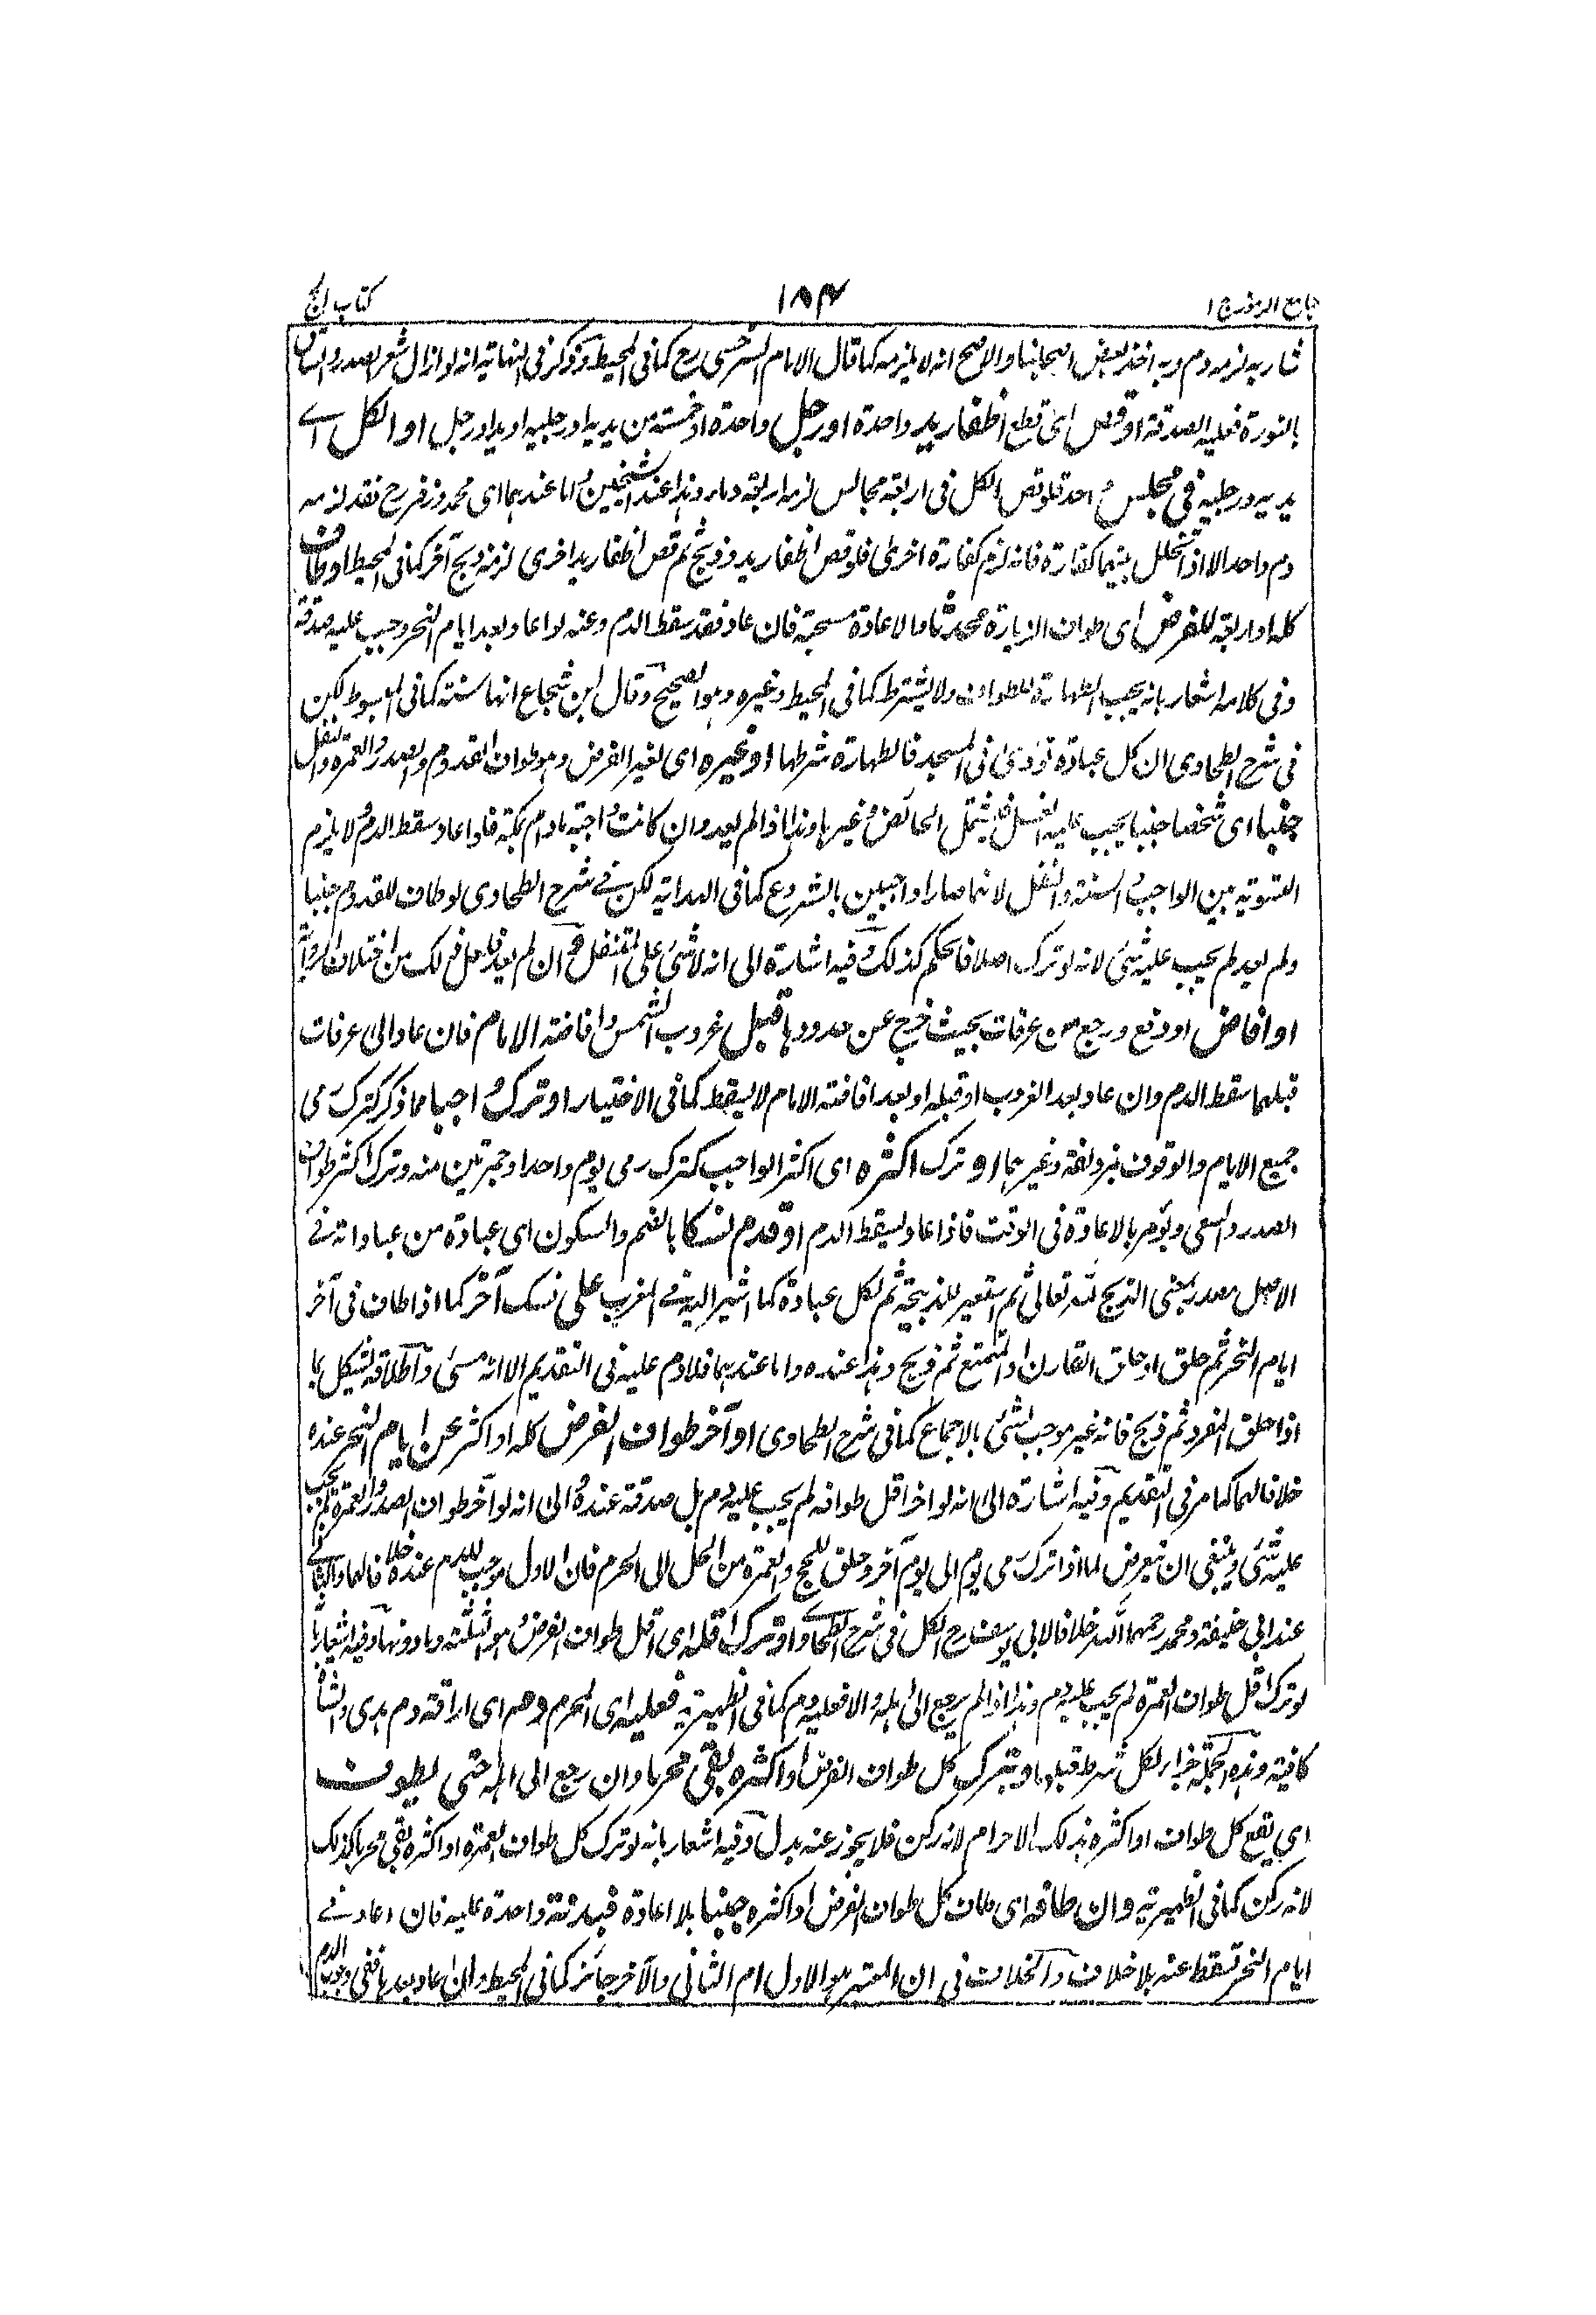 جامع الرموز ج ١
١٨٤
كتاب الحج
شاربه لزمه دم وبه اخذ بعض اصحابنا والاصح انه لا يلزمه كما قال الامام السرخسى رح كما فى المحيط وذكر فى النهاية انه لو ازال شعر الصدر والساق
بالنورة فعليه الصدقة او قص اى قطع اظفار يد واحدة او رجل واحدة او خمسة من يديه او رجليه او يد او رجل او الكل اى
يديه ورجليه فى مجلس واحد فلو قص الكل فى اربعة مجالس لزمه اربعة دماء وهذا عند الشيخين واما عندهما اى محمد وزفر رح فقد لزمه
دم واحد الا اذا تخلل بينهما كفارة فانه لزم كفارة اخرى فلو قص اظفار يد وذبح ثم قص اظفار يد اخرى لزمه ذبح آخر كما فى المحيط او طاف
كله او اربعة للفرض اى طواف الزيارة محدثا والاعادة مستحبة فان عاد فقد سقط الدم وعنه لو اعاد بعد ايام النحر وجب عليه صدقة
وفى كلامه اشعار بانه يجب الطهارة للطواف ولا يشترط كما فى المحيط وغيره وهو الصحيح وقال ابن شجاع انها سنة كما فى المبسوط لكن
فى شرح الطحاوى ان كل عبادة تؤدى فى المسجد فالطهارة شرطها او غيره اى لغير الفرض وهو طواف القدوم والصدر والعمرة والنفل
جنبا اى شخصا جنبا يجب عليه الغسل فيشتمل الحائض وغيرها وهذا اذا لم يعد وان كانت واجبة ما دام بمكة فلو اعاد سقط الدم ولا يلزم
التسوية بين الواجب والسنة والنفل لانهما صارا واجبين بالشروع كما فى الهداية لكن فى شرح الطحاوى لو طاف للقدوم جنبا
ولم يعد لم يجب عليه شئ لانه لو ترك اصلا فالحكم كذلك وفيه اشارة الى انه لا شئ على المتنفل وان لم يعد فلعل ذلك من اختلاف الروايات
او افاض او دفع ورجع من عرفات بحيث خرج عن حدودها قبل غروب الشمس وافاضة الامام فان عاد الى عرفات
قبلهما سقط الدم وان عاد بعد الغروب او قبله او بعد افاضة الامام لا يسقط كما فى الاختيار او ترك واجبا مما ذكر كترك رمى
جميع الايام والوقوف بمزدلفة وغيرهما او ترك اكثره اى اكثر الواجب كترك رمى يوم واحد او جمرتين منه وترك اكثر طواف
الصدر والسعى ويؤمر بالاعادة فى الوقت فاذا عاد يسقط الدم او قدم نسكا بالضم والسكون اى عبادة من عباداته فى
الاصل مصدر بمعنى الذبح لله تعالى ثم استعير للذبيحة ثم لكل عبادة كما اشير اليه فى المغرب على نسك آخر كما اذا طاف فى آخر
ايام النحر ثم حلق او حلق القارن او المتمتع ثم ذبح وهذا عنده واما عندهما فلا دم عليه فى التقديم الا انه مسئ واطلاقه يشكل بما
اذا حلق المفرد ثم ذبح فانه غير موجب لشئ بالاجماع كما فى شرح الطحاوى او آخر طواف الفرض كله او اكثره عن ايام النحر عنده
خلافا لهما كما مر فى التقديم وفيه اشارة الى انه لو اخر اقل طوافه لم يجب عليه دم بل صدقة عنده والى انه لو آخر طواف الصدر والعمرة لم يجب
عليه شئ وينبغى ان يتعرض لما اذا ترك رمى يوم الى يوم آخر وحلق للحج والعمرة من الحل الى الحرم فان الاول موجب للدم عنده خلافا لهما والثانى
عند ابى حنيفة ومحمد رحمهما الله خلافا لابى يوسف رح الكل فى شرح الطحاوى او ترك اقله اى اقل طواف الفرض وهو الثلثة وما دونها وفيه اشعار بانه
لو ترك اقل طواف العمرة لم يجب عليه دم وهذا اذا لم يرجع الى اهله والا فعليه دم كما فى الظهيرية فعليه اى المحرم دم اى اراقة دم هدى والشاة
كافية وهذه الجملة جزاء لكل شرط قبلها وبترك كل طواف الفرض او اكثره بقى محرما وان رجع الى اهله حتى يطوف
اى يقع كل طواف او اكثره بذلك الاحرام لانه ركن فلا يجوز عنه بدل وفيه اشعار بانه لو ترك كل طواف العمرة او اكثره بقى محرما كذلك
لانه ركن كما فى الظهيرية وان طافه اى طاف كل طواف الفرض او اكثره جنبا بلا اعادة فبدنة واحدة عليه فان اعاد فى
ايام النحر تسقط عنه بلا خلاف والخلاف فى ان المعتبر هو الاول ام الثانى والآخر جائز كما فى المحيط وان عاد بعدها ففى وجوب الدم